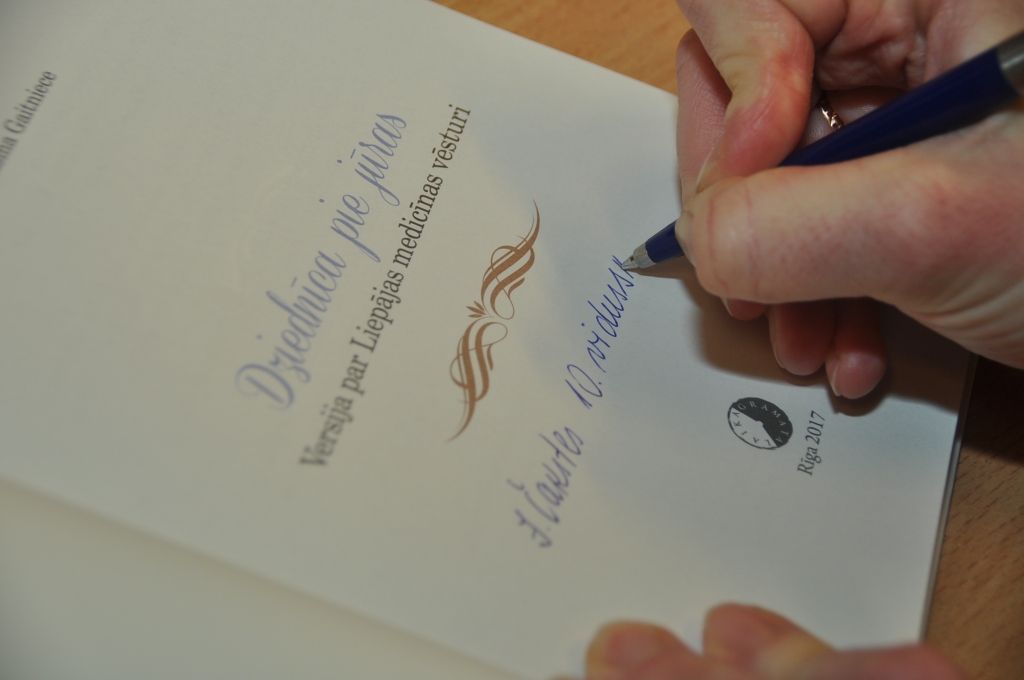 Gaitniece
Dziednīca pie jūras
Versija par Liepājas medicīnas vēsturi
J. Čakstes 10. vidussk
Rīga 2017